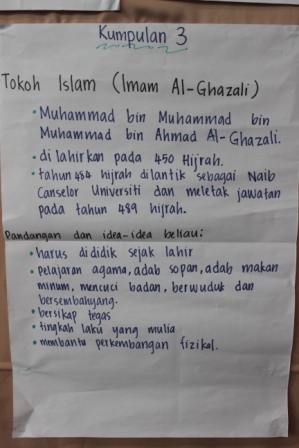 Kumpulan 3
Tokoh Islam (Imam Al-Ghazali)
• Muhammad bin Muhammad bin
Muhammad bin Ahmad Al-Ghazali.
• di lahirkan pada 450 Hijrah.
• tahun 484 hijrah dilantik sebagai Naib
Canselor Universiti dan meletak jawatan
pada tahun 489 hijrah.
Pandangan dan idea-idea beliau:
• harus dididik sejak lahir
• pelajaran agama, adab sopan, adab makan
minum, mencuci badan, berwuduk dan
bersembahyang.
• bersikap tegas
• tingkah laku yang mulia
• membantu perkembangan fizikal.